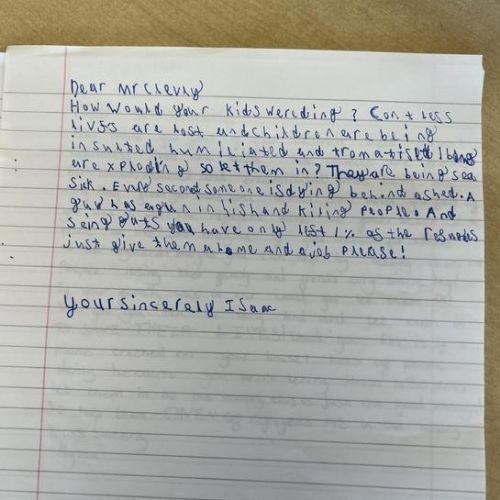 Dear Mr Clevly
How would your kids were ding? Con t less
livss are lost and children are being
insulted humiliated and tromatised! bong
are xploding so let them in? They are being sea
sick. Evry second someone is dying behind a shed. A
gud has a gun in lis hand kiling people. And
seing guts you have only lest 1% of the refugees
just give them a home and a job please!
yours incerely Isaac